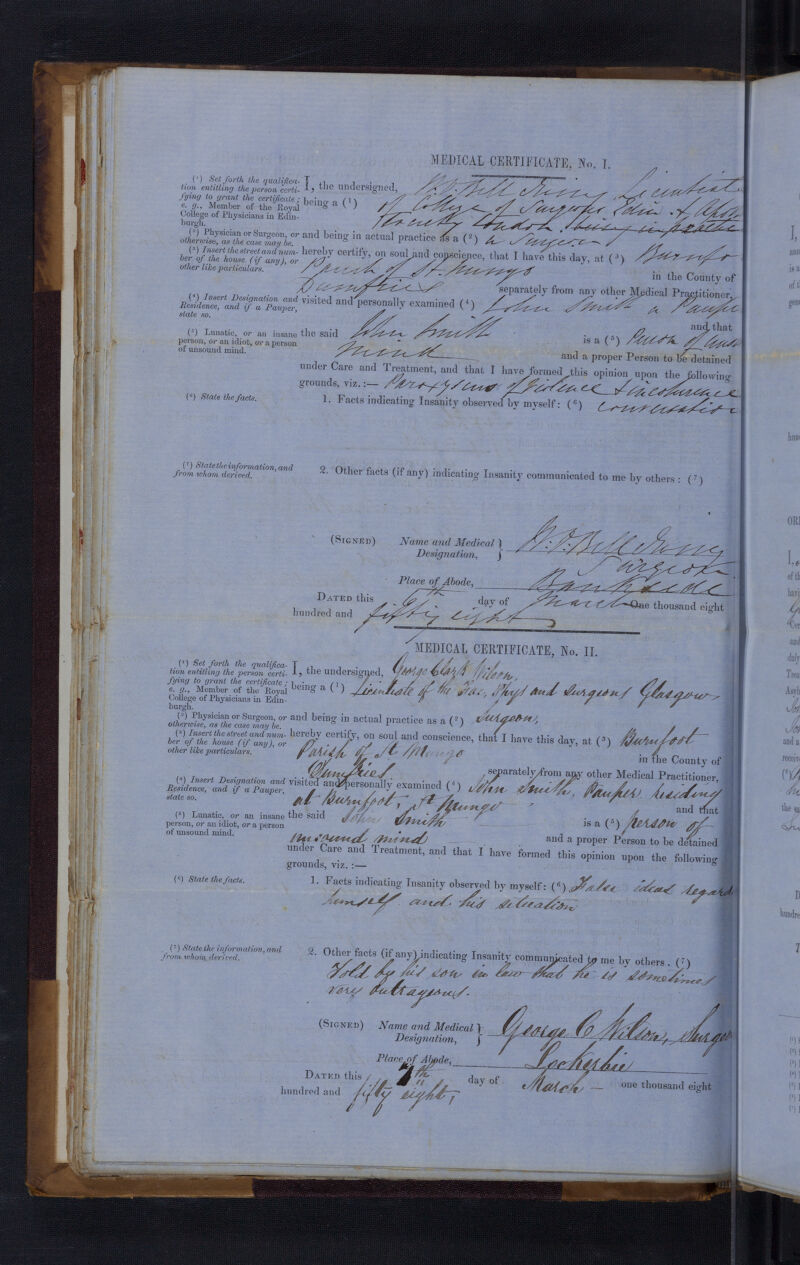 MEDICAL CERTIFICATE, No. I.
(1) Set forth the qualification entitling the person certifying to grant the certificate; e. g., Member of the Royal College of Physicians in Edinburgh.
I, the undersigned, Licentiate
being a (1) of College of Surgeons Edin &
London being in practice
(2) Physician or Surgeon, or otherwise, as the case may be.
and being in actual practice as a (2) a Surgeon
(3) Insert the street and number of the house (if any), or other like particulars.
hereby certify, on soul and conscience, that I have this day, at (3)
Parish of St. Mungo in the County of
Dumfries separately from any other Medical Practitioner,
(4) Insert Designation and Residence, and if a Pauper, state so.
visited and personally examined (4) John Smith a
and that
(5) Lunatic, or an insane person, or an idiot, or a person of unsound mind.
the said John Smith is a (5) Person of
mind and a proper Person to be detained
under Care and Treatment, and that I have formed this opinion upon the following
grounds, viz.:— Paroxysms of Violence & incoherence
(6) State the facts.
1. Facts indicating Insanity observed by myself: (6)
(7) State the information, and from whom derived.
2. Other facts (if any) indicating Insanity communicated to me by others: (7)
(SIGNED) Name and Medical Designation, Bell
Surgeon
Place of Abode, Bankside
DATED this day of March One thousand eight
hundred and fifty eight
MEDICAL CERTIFICATE, No. II.
(1) Set forth the qualification entitling the person certifying to grant the certificate; e. g., Member of the Royal College of Physicians in Edinburgh.
I, the undersigned, George Clark Wilson,
being a (1) Licentiate of the Fac. Phys and Surgeons Glasgow
(2) Physician or Surgeon, or otherwise, as the case may be.
and being in actual practice as a (2) Surgeon,
(3) Insert the street and number of the house (if any), or other like particulars.
hereby certify, on soul and conscience, that I have this day, at (3) Burnfoot
Parish of St Mungo in the County of
Dumfries separately from any other Medical Practitioner,
(4) Insert Designation and Residence, and if a Pauper, state so.
visited and personally examined (4) John Smith, Pauper residing
at Burnfoot, St Mungo and that
(5) Lunatic, or an insane person, or an idiot, or a person of unsound mind.
the said John Smith is a (5) person of
unsound mind and a proper Person to be detained
under Care and Treatment, and that I have formed this opinion upon the following
grounds, viz.:—
(6) State the facts.
1. Facts indicating Insanity observed by myself: (6) False ideas regard
himself and his situation
(7) State the information, and from whom derived.
2. Other facts (if any) indicating Insanity communicated to me by others. (7)
Told by his son in law that he is sometimes
very outrageous.
(SIGNED) Name and Medical Designation, George C Wilson,
Place of Abode, Lockerbie
DATED this day of March — one thousand eight
hundred and fifty eight,